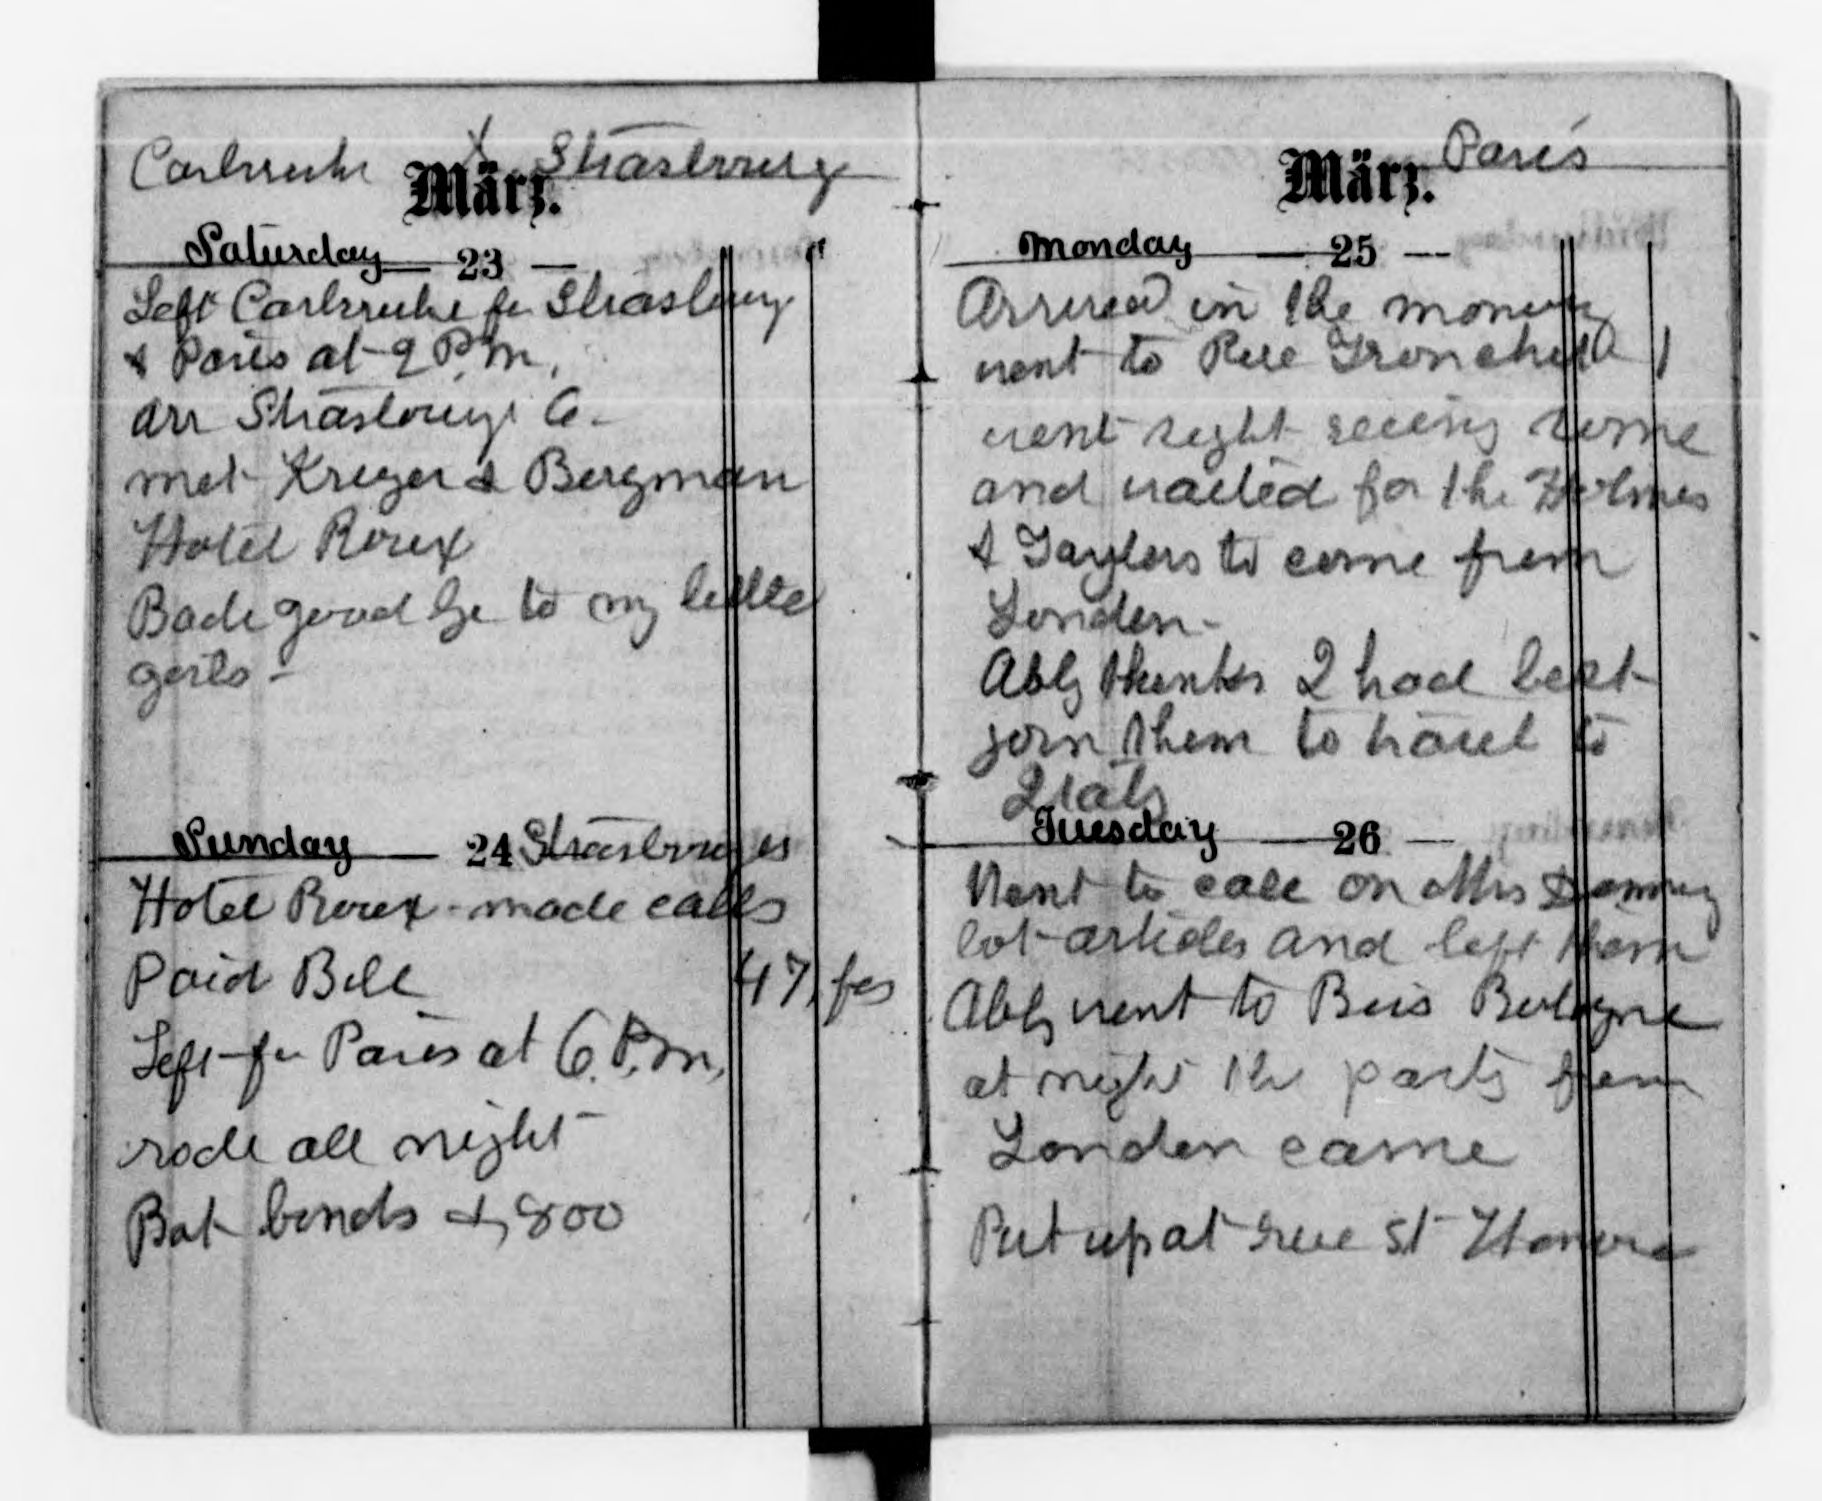 Carlsruhe & Strasbourg
März.
Saturday — 23 —
Left Carlsruhe for Strasbourg
& Paris at 2 P.m,
arr Strasbourg 6 -
met Kreger & Bergman
Hotel Rorex
Bade good bye to my little
girls -
Sunday — 24 Strasbourg
Hotel Rorex - made calls
Paid Bill 47, fcs
Left for Paris at 6 P.m,
rode all night
Bot bonds 800
Paris
März.
Monday — 25 —
Arrived in the morning
went to Rue Tronchet
went sight seeing some
and waited for the Holmes
& Taylors to come from
London -
Abby thinks I had best
join them to travel to
Italy
Tuesday — 26 —
Went to call on Mrs
bot articles and left them
Abby went to Bois Bologne
at night the party from
London came
Put up at rue St Honore